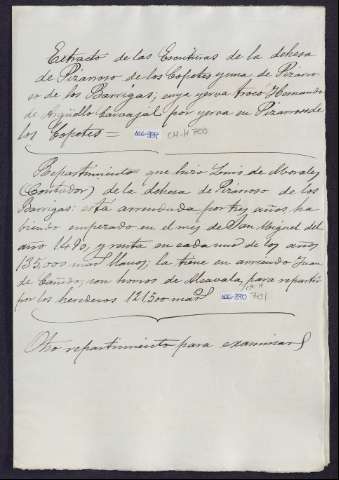 Extracto de las Escrituras de la dehesa
de Pizarroso de los Copetes y una de Pizarro
so de los Barrigas, cuya yerva troco Hernando
de Argüello Carvajal por yerva en Pizarroso de
los Copetes =
CH-H 700
Repartimiento que hizo Louis de Morales
(Contador) de la dehesa de Pizarroso de los
Barrigas: está arrendada por tres años, ha
biendo empezado en el mes de San Miguel del
año 1490, y renta en cada uno de los años
135.000 mars blancos; la tiene en arriendo Juan
de Cañedo, son horros de Alcavala, para repartir
por los herederos 121500 mars
CH-H
701
Otro repartimiento para examinar